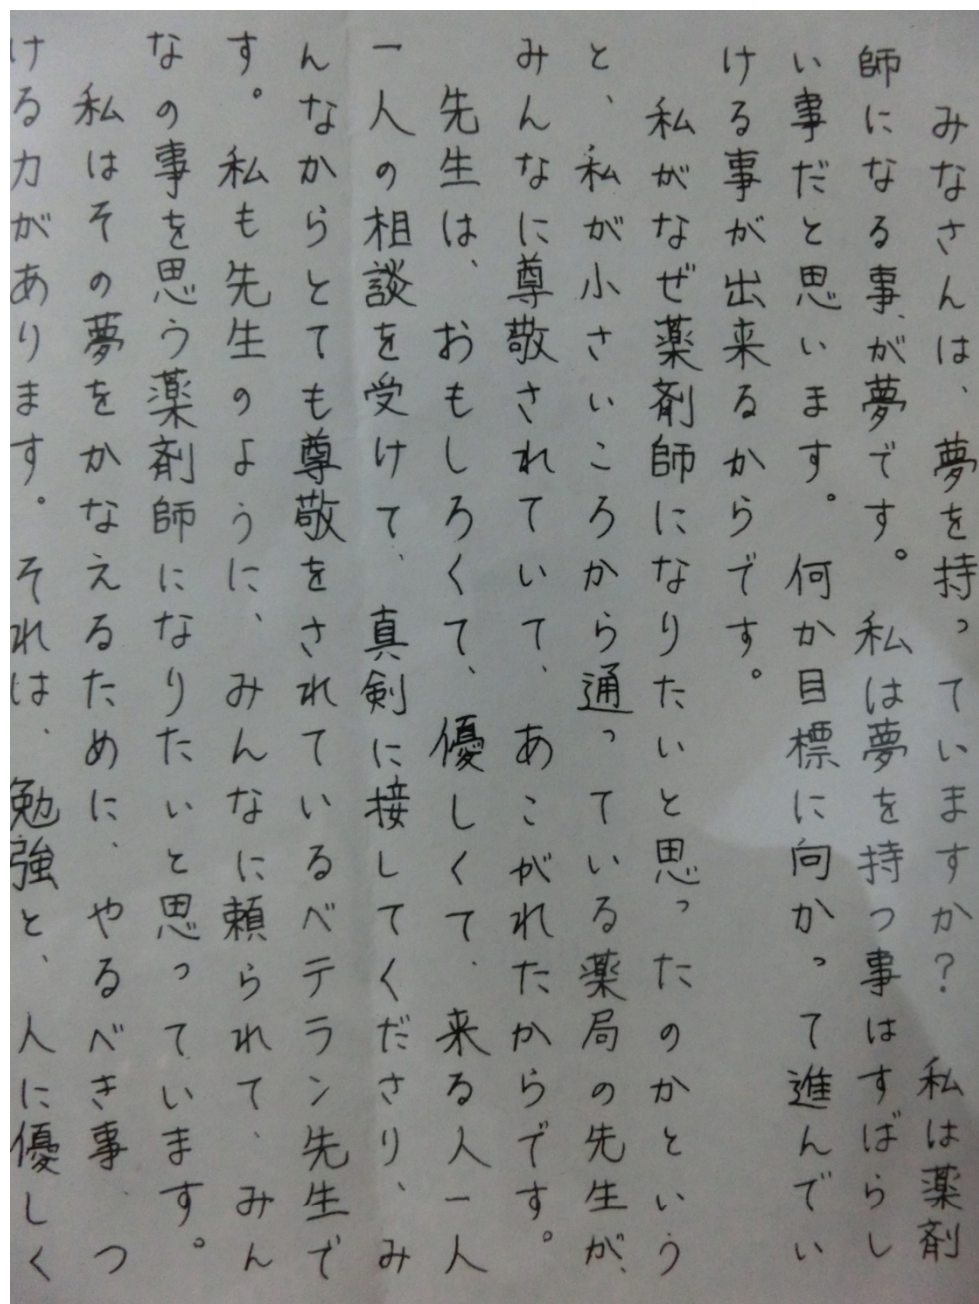 みなさんは、夢を持っていますか？私は薬剤
師になる事が夢です。私は夢を持つ事はすばらし
い事だと思います。何か目標に向かって進んでい
ける事が出来るからです。
私がなぜ薬剤師になりたいと思ったのかという
と、私が小さいころから通っている薬局の先生が、
みんなに尊敬されていて、あこがれたからです。
先生は、おもしろくて、優しくて、来る人一人
一人の相談を受けて、真剣に接してくださり、み
んなからとても尊敬をされているベテラン先生で
す。私も先生のように、みんなに頼られて、みん
なの事を思う薬剤師になりたいと思っています。
私はその夢をかなえるために、やるべき事、つ
ける力があります。それは、勉強と、人に優しく